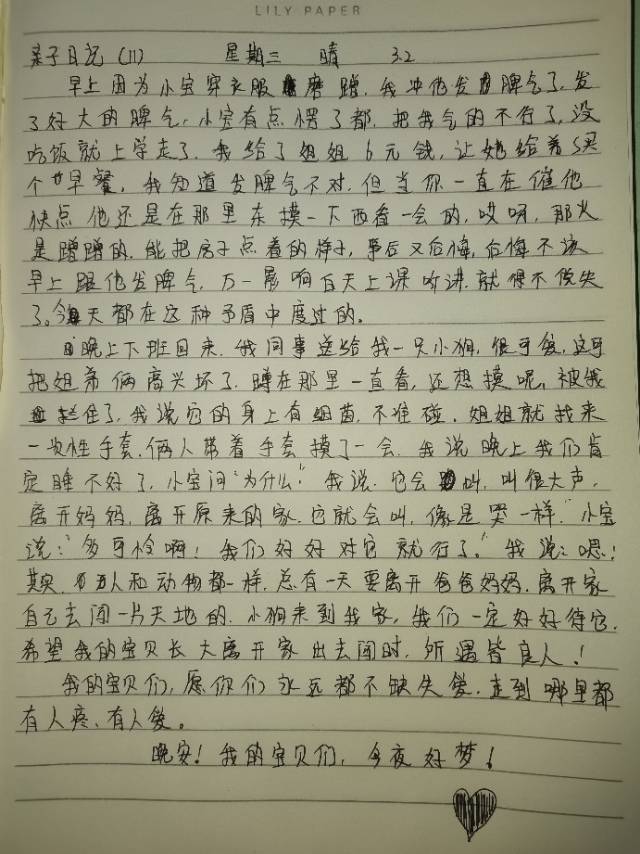 LILY PAPER
亲子日记（11） 星期三 晴 3.2
早上因为小宝穿衣服磨蹭，我冲他发脾气了，发
了好大的脾气，小宝有点愣了都，把我气的不行了，没
吃饭就上学走了，我给了姐姐6元钱，让她给着买
个早餐，我知道发脾气不对，但当你一直在催他
快点他还是在那里东摸一下西看一会的，哎呀，那火
是蹭蹭的，能把房子点着的样子，事后又后悔，后悔不该
早上跟他发脾气，万一影响白天上课听讲，就得不偿失
了。今天都在这种矛盾中度过的。
晚上下班回来，我同事送给我一只小狗，很可爱，这可
把姐弟俩高兴坏了，蹲在那里一直看，还想摸呢，被我
拦住了，我说它的身上有细菌，不准碰，姐姐就找来
一次性手套，俩人带着手套摸了一会，我说晚上我们肯
定睡不好了，小宝问"为什么"我说：它会叫，叫很大声，
离开妈妈，离开原来的家，它就会叫，像是哭一样，"小宝
说："多可怜啊！我们好好对它就行了。"我说：嗯！
其实，人和动物都一样，总有一天要离开爸爸妈妈，离开家
自己去闯一片天地的，小狗来到我家，我们一定好好待它，
希望我的宝贝长大离开家出去闯时，所遇皆良人！
我的宝贝们，愿你们永远都不缺失爱，走到哪里都
有人疼，有人爱。
晚安！我的宝贝们，今夜好梦！